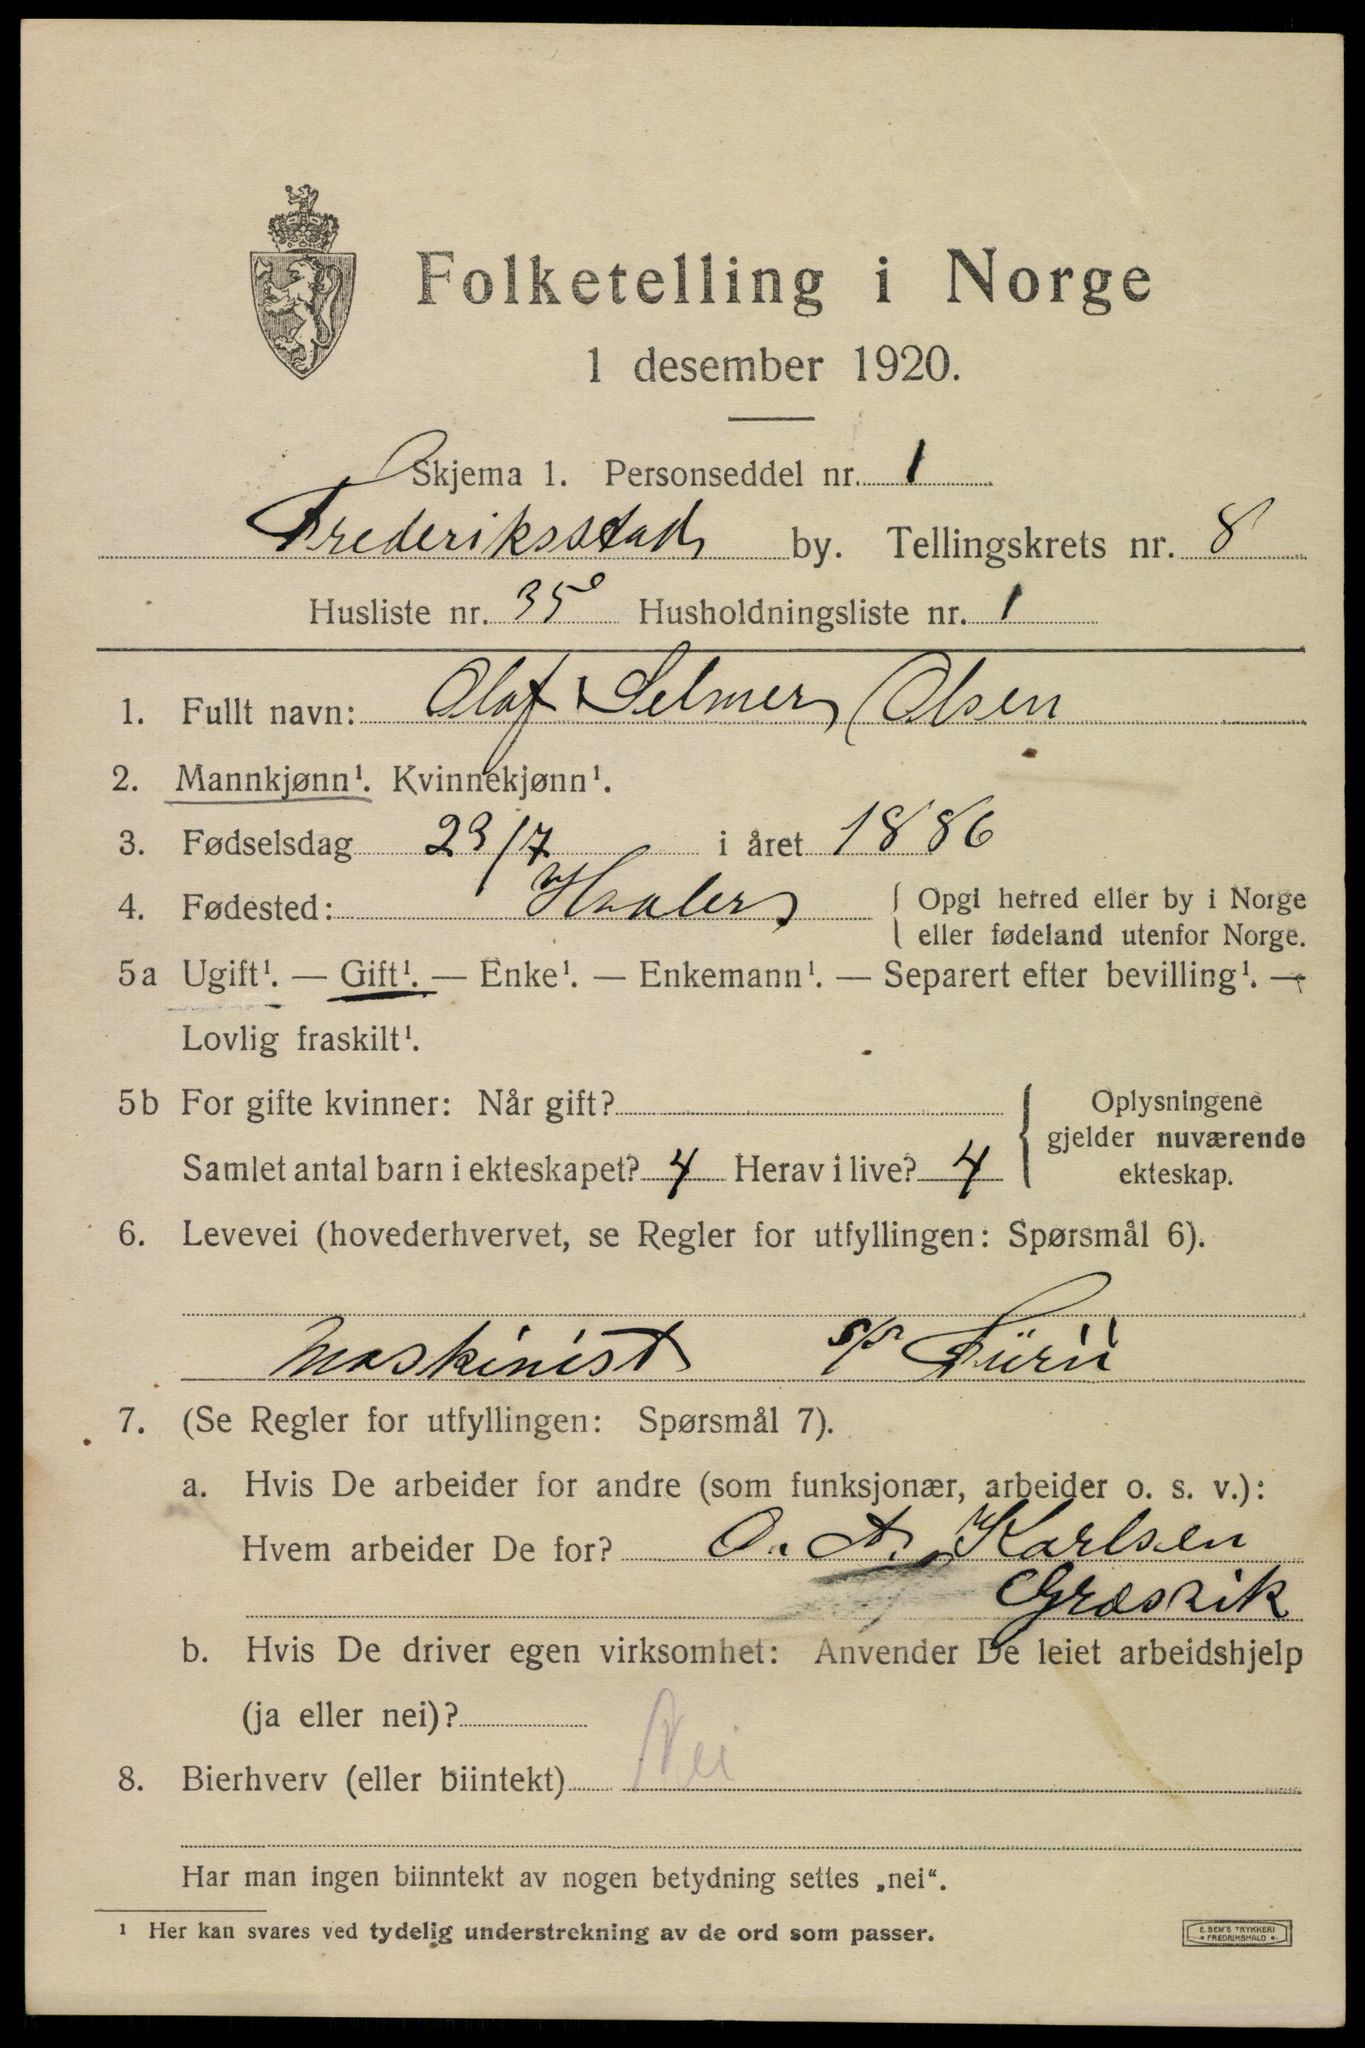 Folketelling i Norge
1 desember 1920.
Skjema 1. Personseddel nr. 1
Frederiksstad by. Tellingskrets nr. 8
Husliste nr. 35 Husholdningsliste nr. 1
1. Fullt navn: Olaf Selmer Olsen
2. Mannkjønn¹. Kvinnekjønn¹.
3. Fødselsdag 23/7 i året 1886
4. Fødested: Hvaler { Opgi herred eller by i Norge
eller fødeland utenfor Norge.
5a Ugift¹. — Gift¹. — Enke¹. — Enkemann¹. — Separert efter bevilling¹. —
Lovlig fraskilt¹.
5b For gifte kvinner: Når gift? { Oplysningene
gjelder nuværende
Samlet antal barn i ekteskapet? 4 Herav i live? 4
ekteskap.
6. Levevei (hovederhvervet, se Regler for utfyllingen: Spørsmål 6).
Maskinist
7. (Se Regler for utfyllingen: Spørsmål 7).
a. Hvis De arbeider for andre (som funksjonær, arbeider o. s. v.):
Hvem arbeider De for? O. A. Karlsen
Græsvik
b. Hvis De driver egen virksomhet: Anvender De leiet arbeidshjelp
(ja eller nei)?
8. Bierhverv (eller biintekt) Nei
Har man ingen biinntekt av nogen betydning settes „nei“.
¹ Her kan svares ved tydelig understrekning av de ord som passer.
E. SEM'S TRYKKERI
• FREDRIKSHALD •